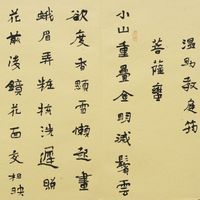 温助教庭筠
菩薩蠻
小山重疊金明滅鬢雲
欲度香顋雪懶起畫
蛾眉弄粧梳洗遲照
花前後鏡花面交相映